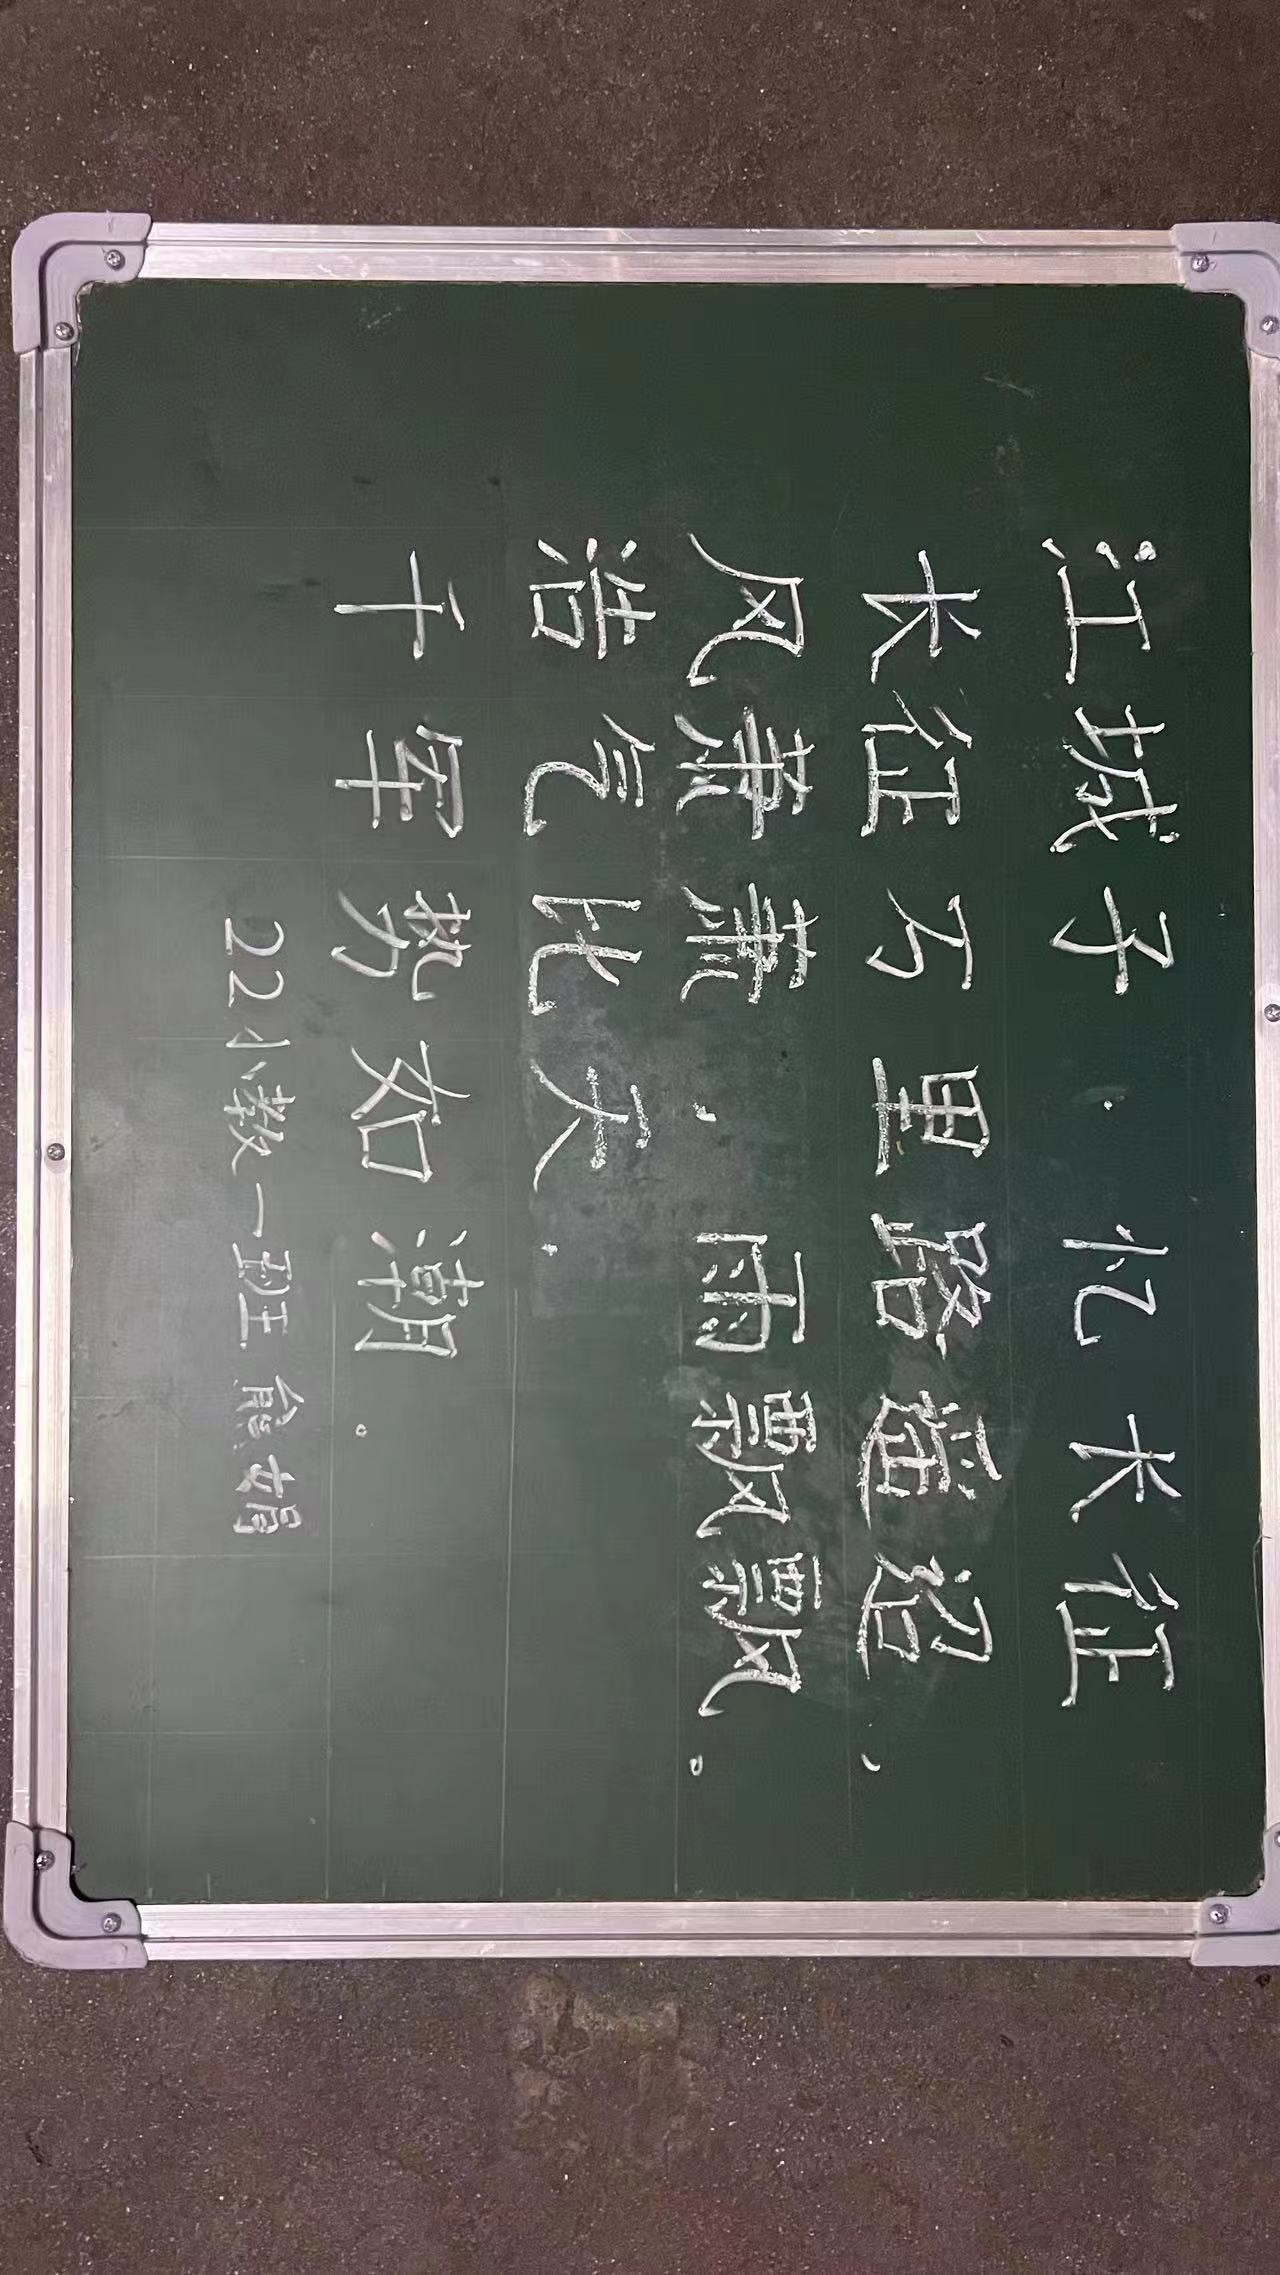 江城子·忆长征
长征万里路遥迢,
风萧萧,雨飘飘。
浩气比天,
千军势如潮。
22小数一班 熊娟